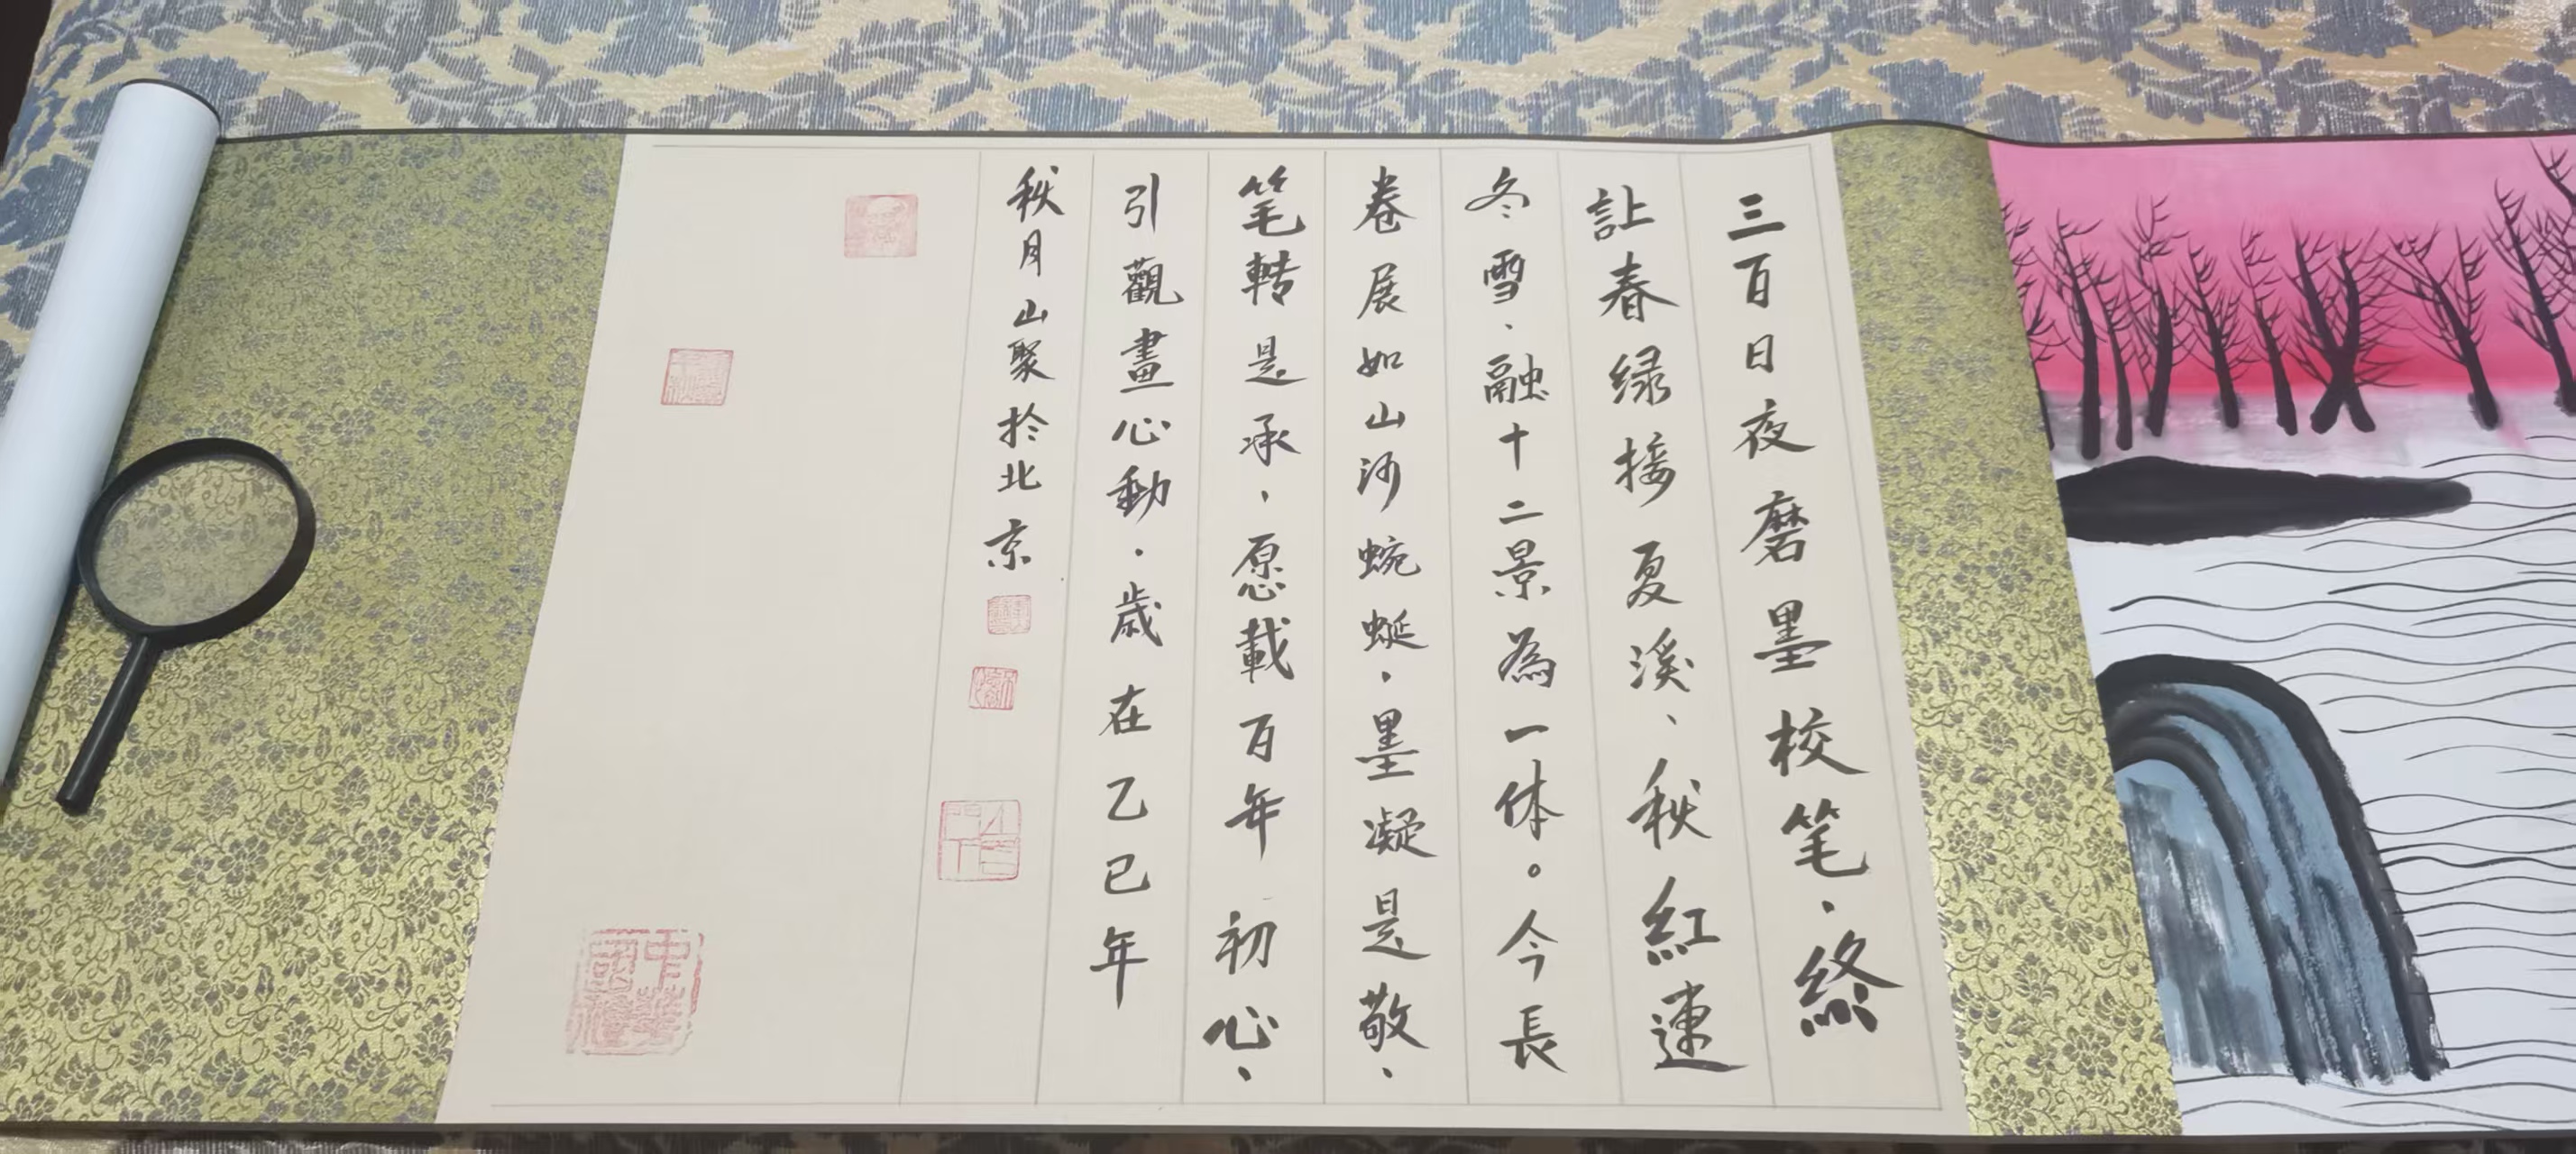 三百日夜磨墨校笔、終
訟春绿接夏溪、秋紅連
冬雪、融十二景為一体。今長
卷展如山河蜿蜒、墨凝是敬、
笔轉是承、愿載百年初心、
引觀畫心動、歲在乙巳年
秋月山聚於北京
中華
國禮